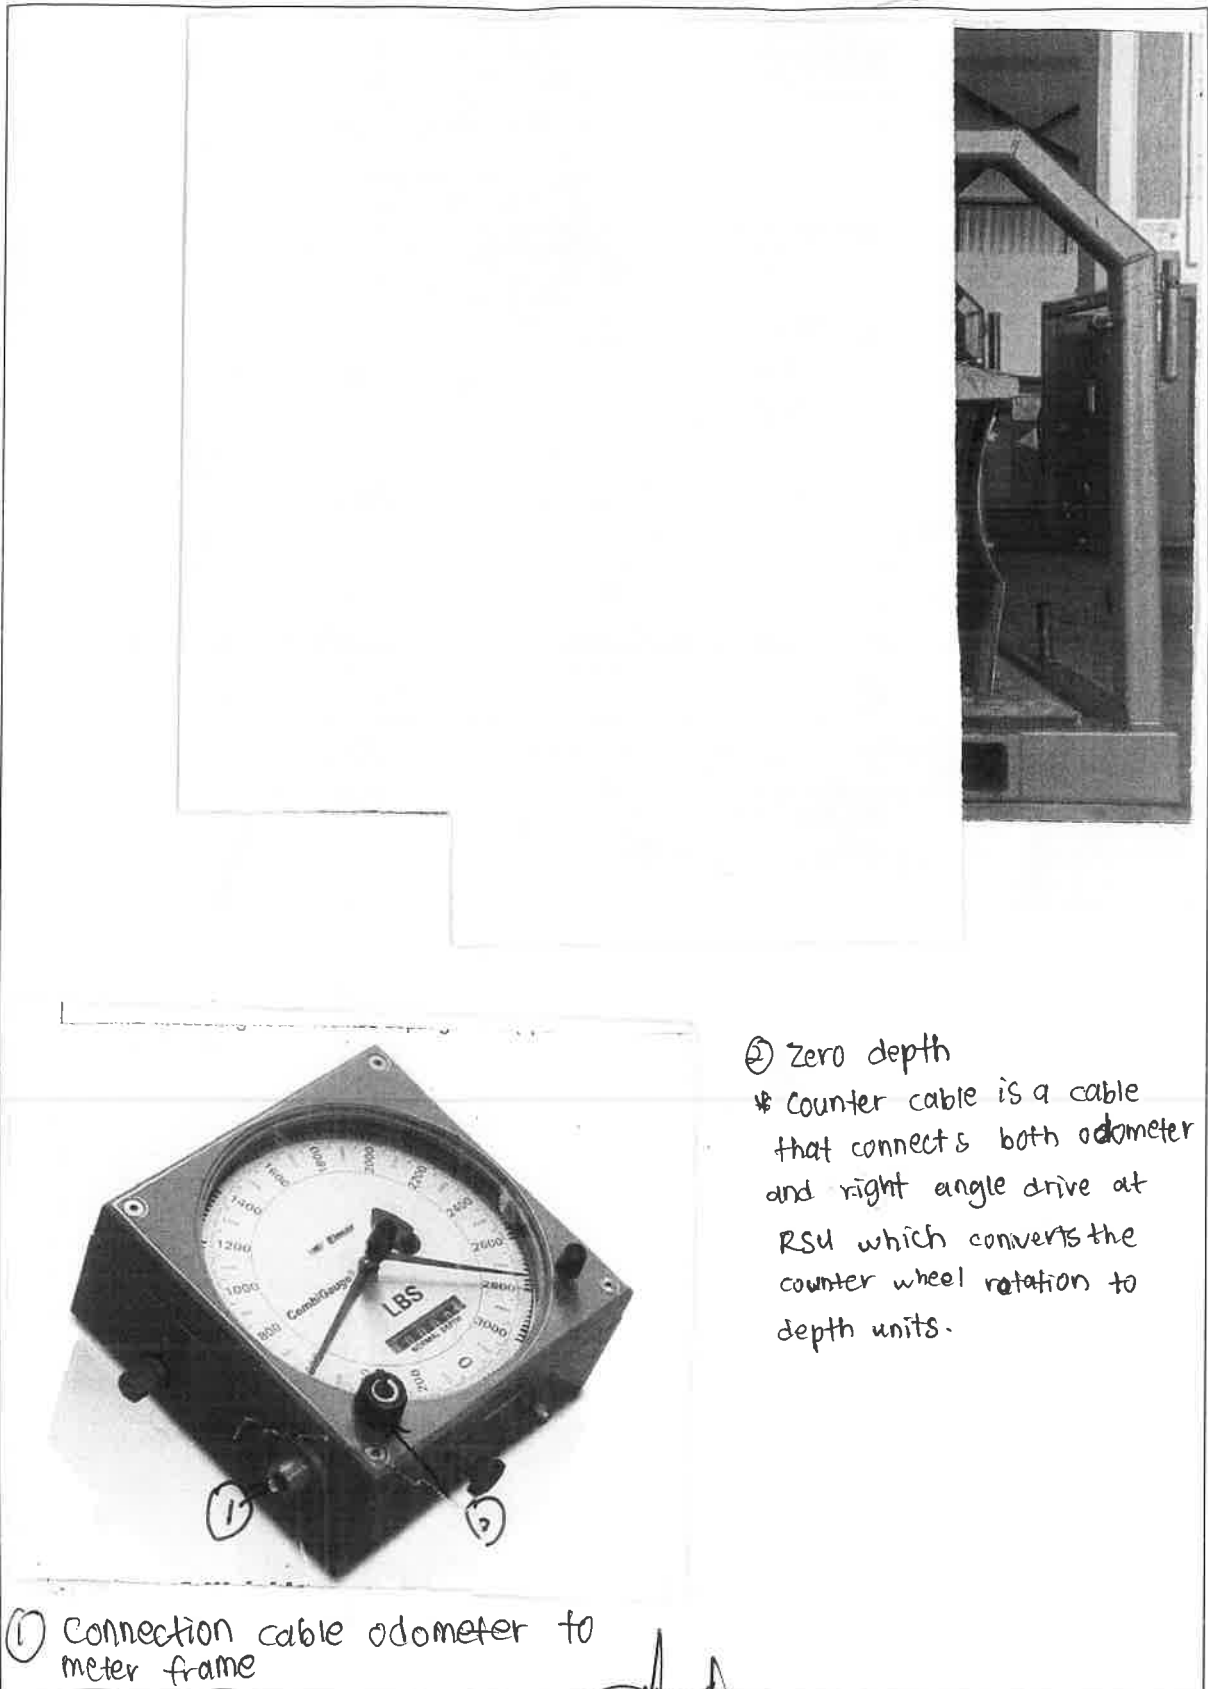 ② Zero depth
* Counter cable is a cable
that connects both odometer
and right angle drive at
RSU which converts the
counter wheel rotation to
depth units.
1000
1200
1400
1600
2000
2200
2400
2600
2800
3000
0
200
800
Elmar
CombiGauge
LBS
1
2
① Connection cable odometer to
meter frame